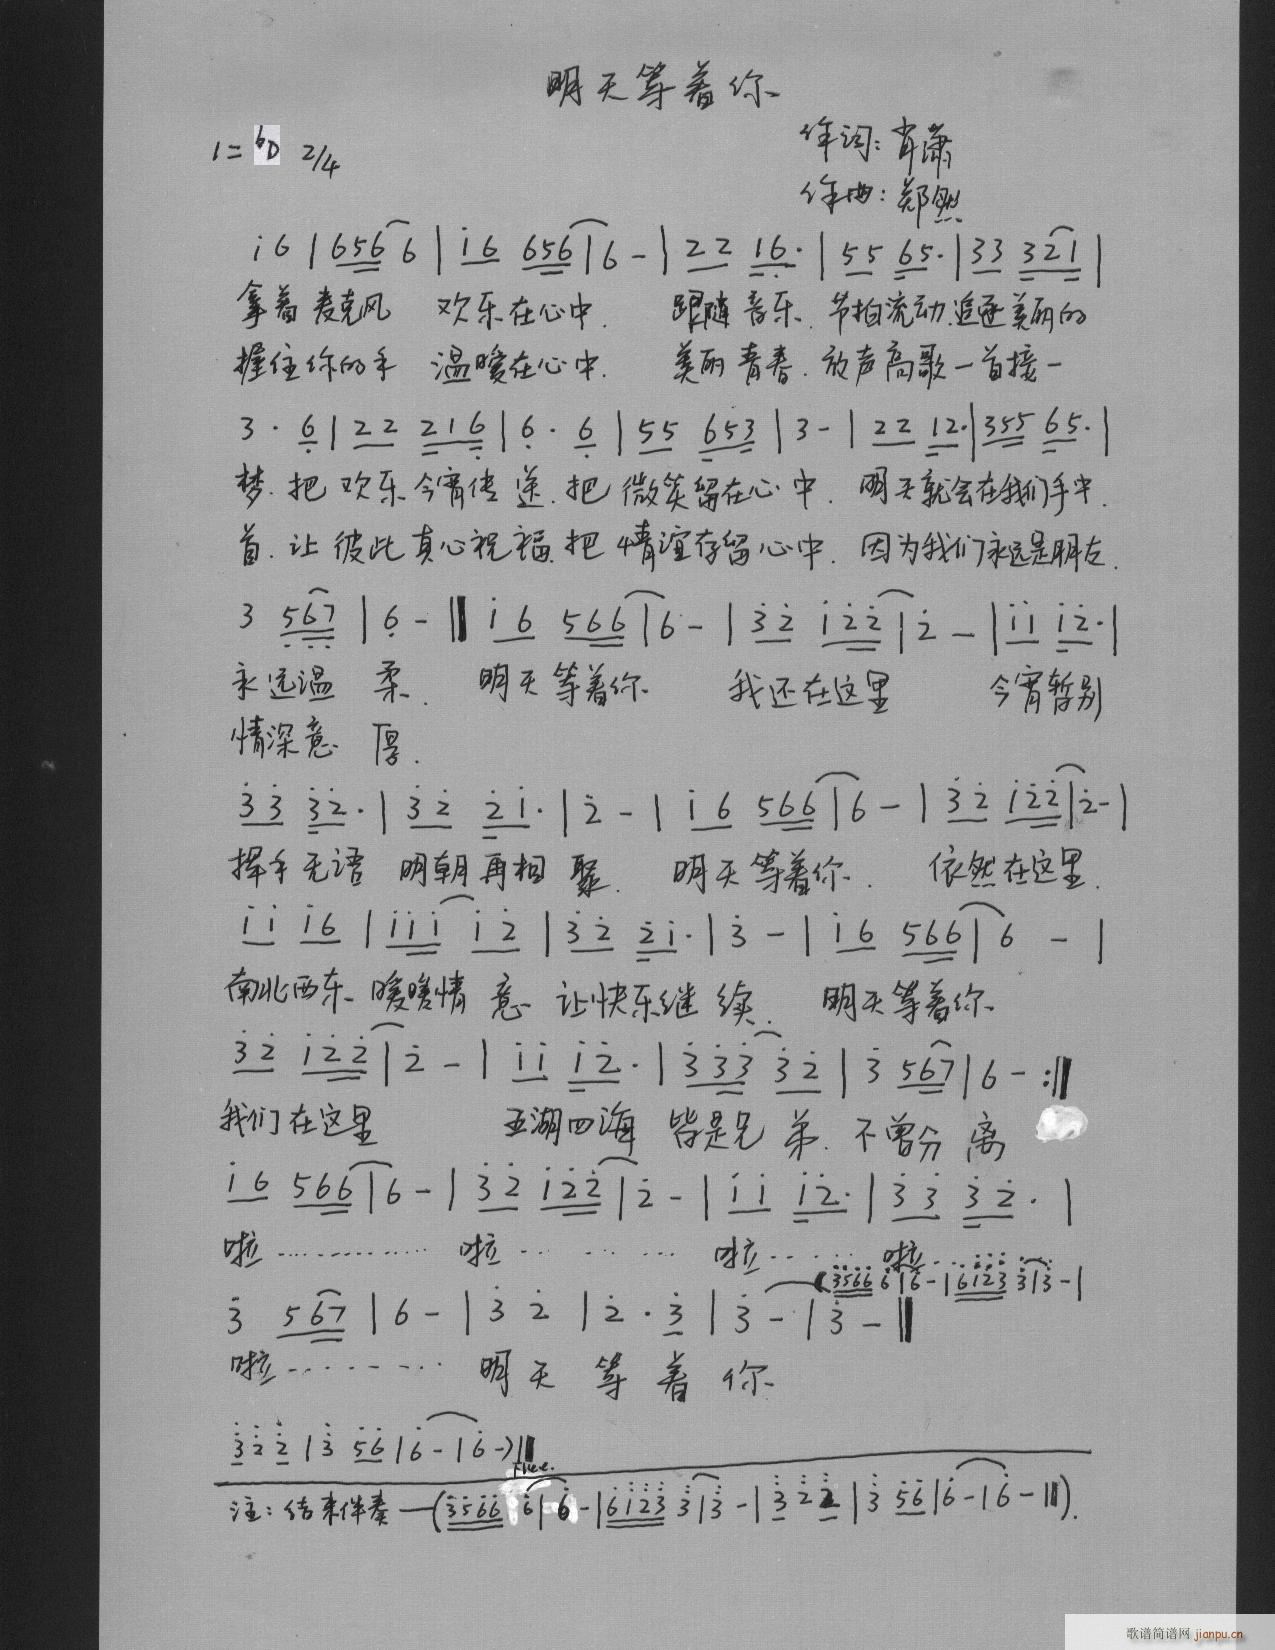 明天等着你
1=♭D 2/4
作词：肖潇
作曲：郑然
i 6 | 6 5 6 6 | i 6 6 5 6 | 6 - | 2 2 1 6 · | 5 5 6 5 · | 3 3 3 2 1 |
拿着麦克风 欢乐在心中. 跟随音乐. 节拍流动.追逐美丽的
握住你的手 温暖在心中. 美丽青春. 放声高歌一首接一
3 · 6 | 2 2 2 1 6 | 6 · 6 | 5 5 6 5 3 | 3 - | 2 2 1 2 · | 3 5 5 6 5 · |
梦.把欢乐今宵传送.把微笑留在心中. 明天就会在我们手中.
首.让彼此真心祝福.把情谊存留心中. 因为我们永远是朋友.
3 5 6 7 | 6 - ‖ i 6 5 6 6 | 6 - | 3 2 1 2 2 | 2 - | i i i 2 · |
永远温柔. 明天等着你 我还在这里 今宵暂别
情深意厚.
3 3 3 2 · | 3 2 2 1 · | 2 - | i 6 5 6 6 | 6 - | 3 2 1 2 2 | 2 - |
挥手无语 明朝再相聚. 明天等着你. 依然在这里.
i i i 6 | i i i i 2 | 3 2 2 i · | 3 - | i 6 5 6 6 | 6 - |
南北西东 暖暖情意 让快乐继续. 明天等着你
3 2 1 2 2 | 2 - | i i i 2 · | 3 3 3 3 2 | 3 5 6 7 | 6 - :‖
我们在这里 五湖四海 皆是兄弟. 不曾分离
i 6 5 6 6 | 6 - | 3 2 1 2 2 | 2 - | i i i 2 · | 3 3 3 2 · |
啦…………… 啦… … … 啦… … 啦…
(3 5 6 6 6 | 6 - | 6 1 2 3 3 | 3 - |
3 5 6 7 | 6 - | 3 2 | 2 · 3 | 3 - | 3 - ‖
啦………… 明天等着你
3 2 2 | 3 5 6 | 6 - | 6 -) ‖
Fine.
注：结束伴奏—(3 5 6 6 6 | 6 - | 6 1 2 3 3 | 3 - | 3 2 2 | 3 5 6 | 6 - | 6 - ‖).
歌谱简谱网 jianpu.cn